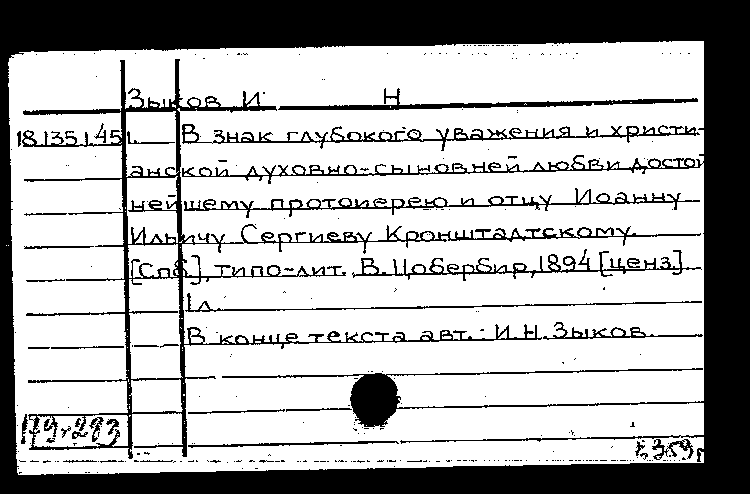 Зыков И Н
18.135.1.451. В знак глубокого уважения и христи-
анской духовно-сыновней любви достой
нейшему протоиерею и отцу Иоанну
Ильичу Сергиеву Кронштадтскому.
[Спб], типо-лит. В. Цобербир, 1894 [ценз]
1 л.
В конце текста авт.: И.Н. Зыков.